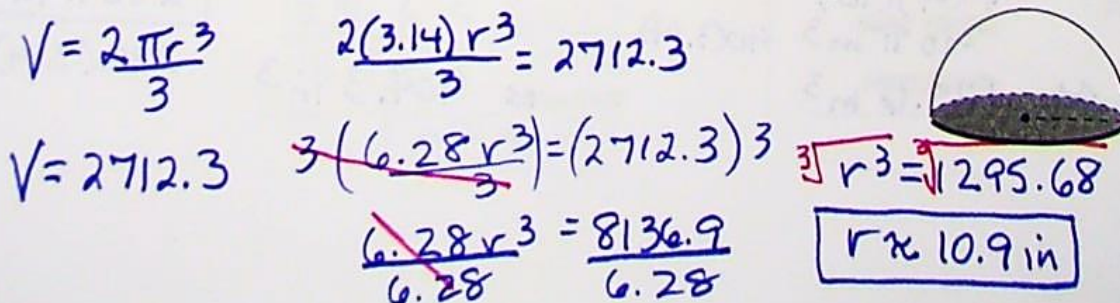 V = 2πr³/3
2(3.14) r³/3 = 2712.3
V = 2712.3
3(6.28 r³/3) = (2712.3)3
6.28 r³/6.28 = 8136.9/6.28
∛r³ = ∛1295.68
r ≈ 10.9 in